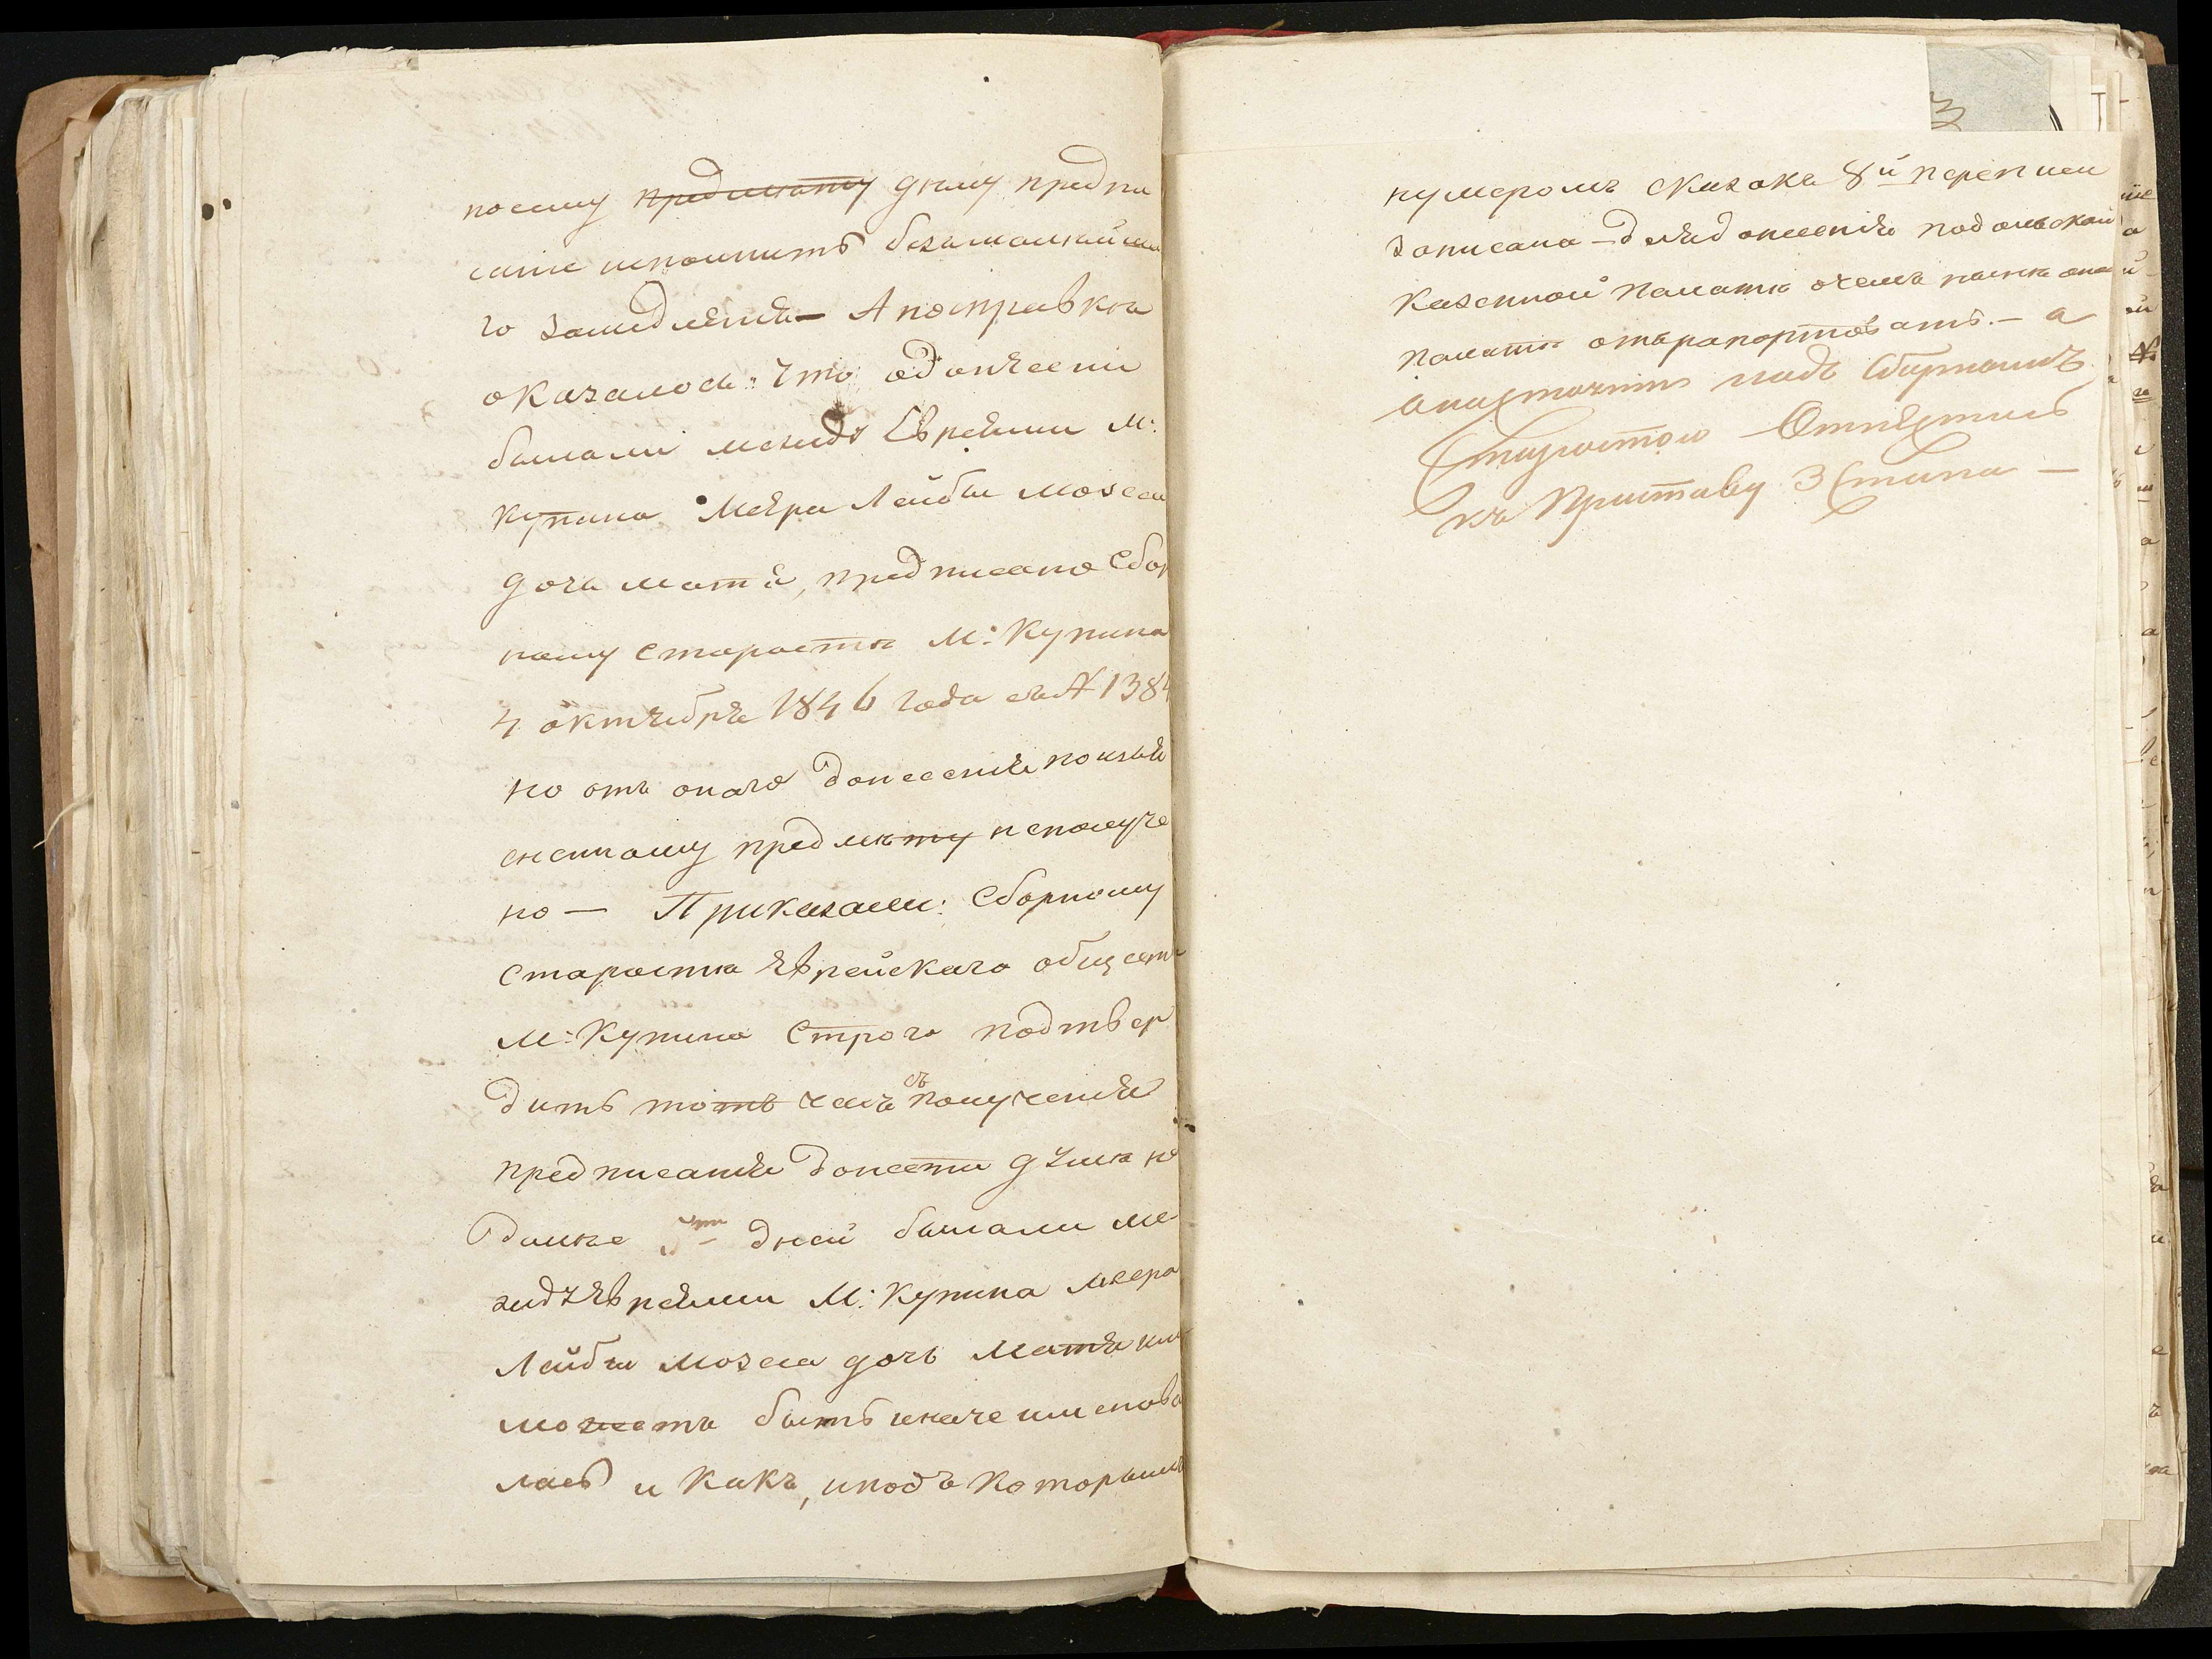 посему предмѣту думу предпи
саніе исполнить безъмалѣйша
го замедленія — А посправкѣ
оказалось: что одонесени
былали между Евреями М:
Купина Меера Лейбы Мозеса
дочь Матя, предписано Сбор
ному Старостѣ М: Купина
4 октября 1846 года съ № 1384
но отъ онаго донесенія поизъя
сненному предмѣту неполуче
но — Приказали: Сборному
старостѣ Еврейскаго общест:
М: Купина Строго подтвер
дить чемъ съ полученія
предписанія донести думѣ не
далѣе 5ти дней былали ме
жду Евреями М: Купина Меера
Лейбы Мозеса дочь Матя или
можетъ быть иначе именова
лась и какъ, иподъ которымъ
нумеромъ сказокъ 8й переписи
записана — для донесенія подольской
Казенной палатѣ очемъ нынѣ оной
палатѣ отърапортовать. — а
надъ Сборнымъ
Старостою
къ Приставу 3 Стана —
3